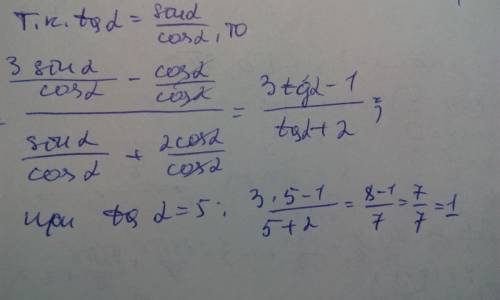 Т.к. tgα = sinα/cosα, то
(3 sinα/cosα - cosα/cosα)/(sinα/cosα + 2cosα/cosα) = (3tgα-1)/(tgα+2);
при tg α=5: (3·5-1)/(5+2) = (8-1)/7 = 7/7 = 1